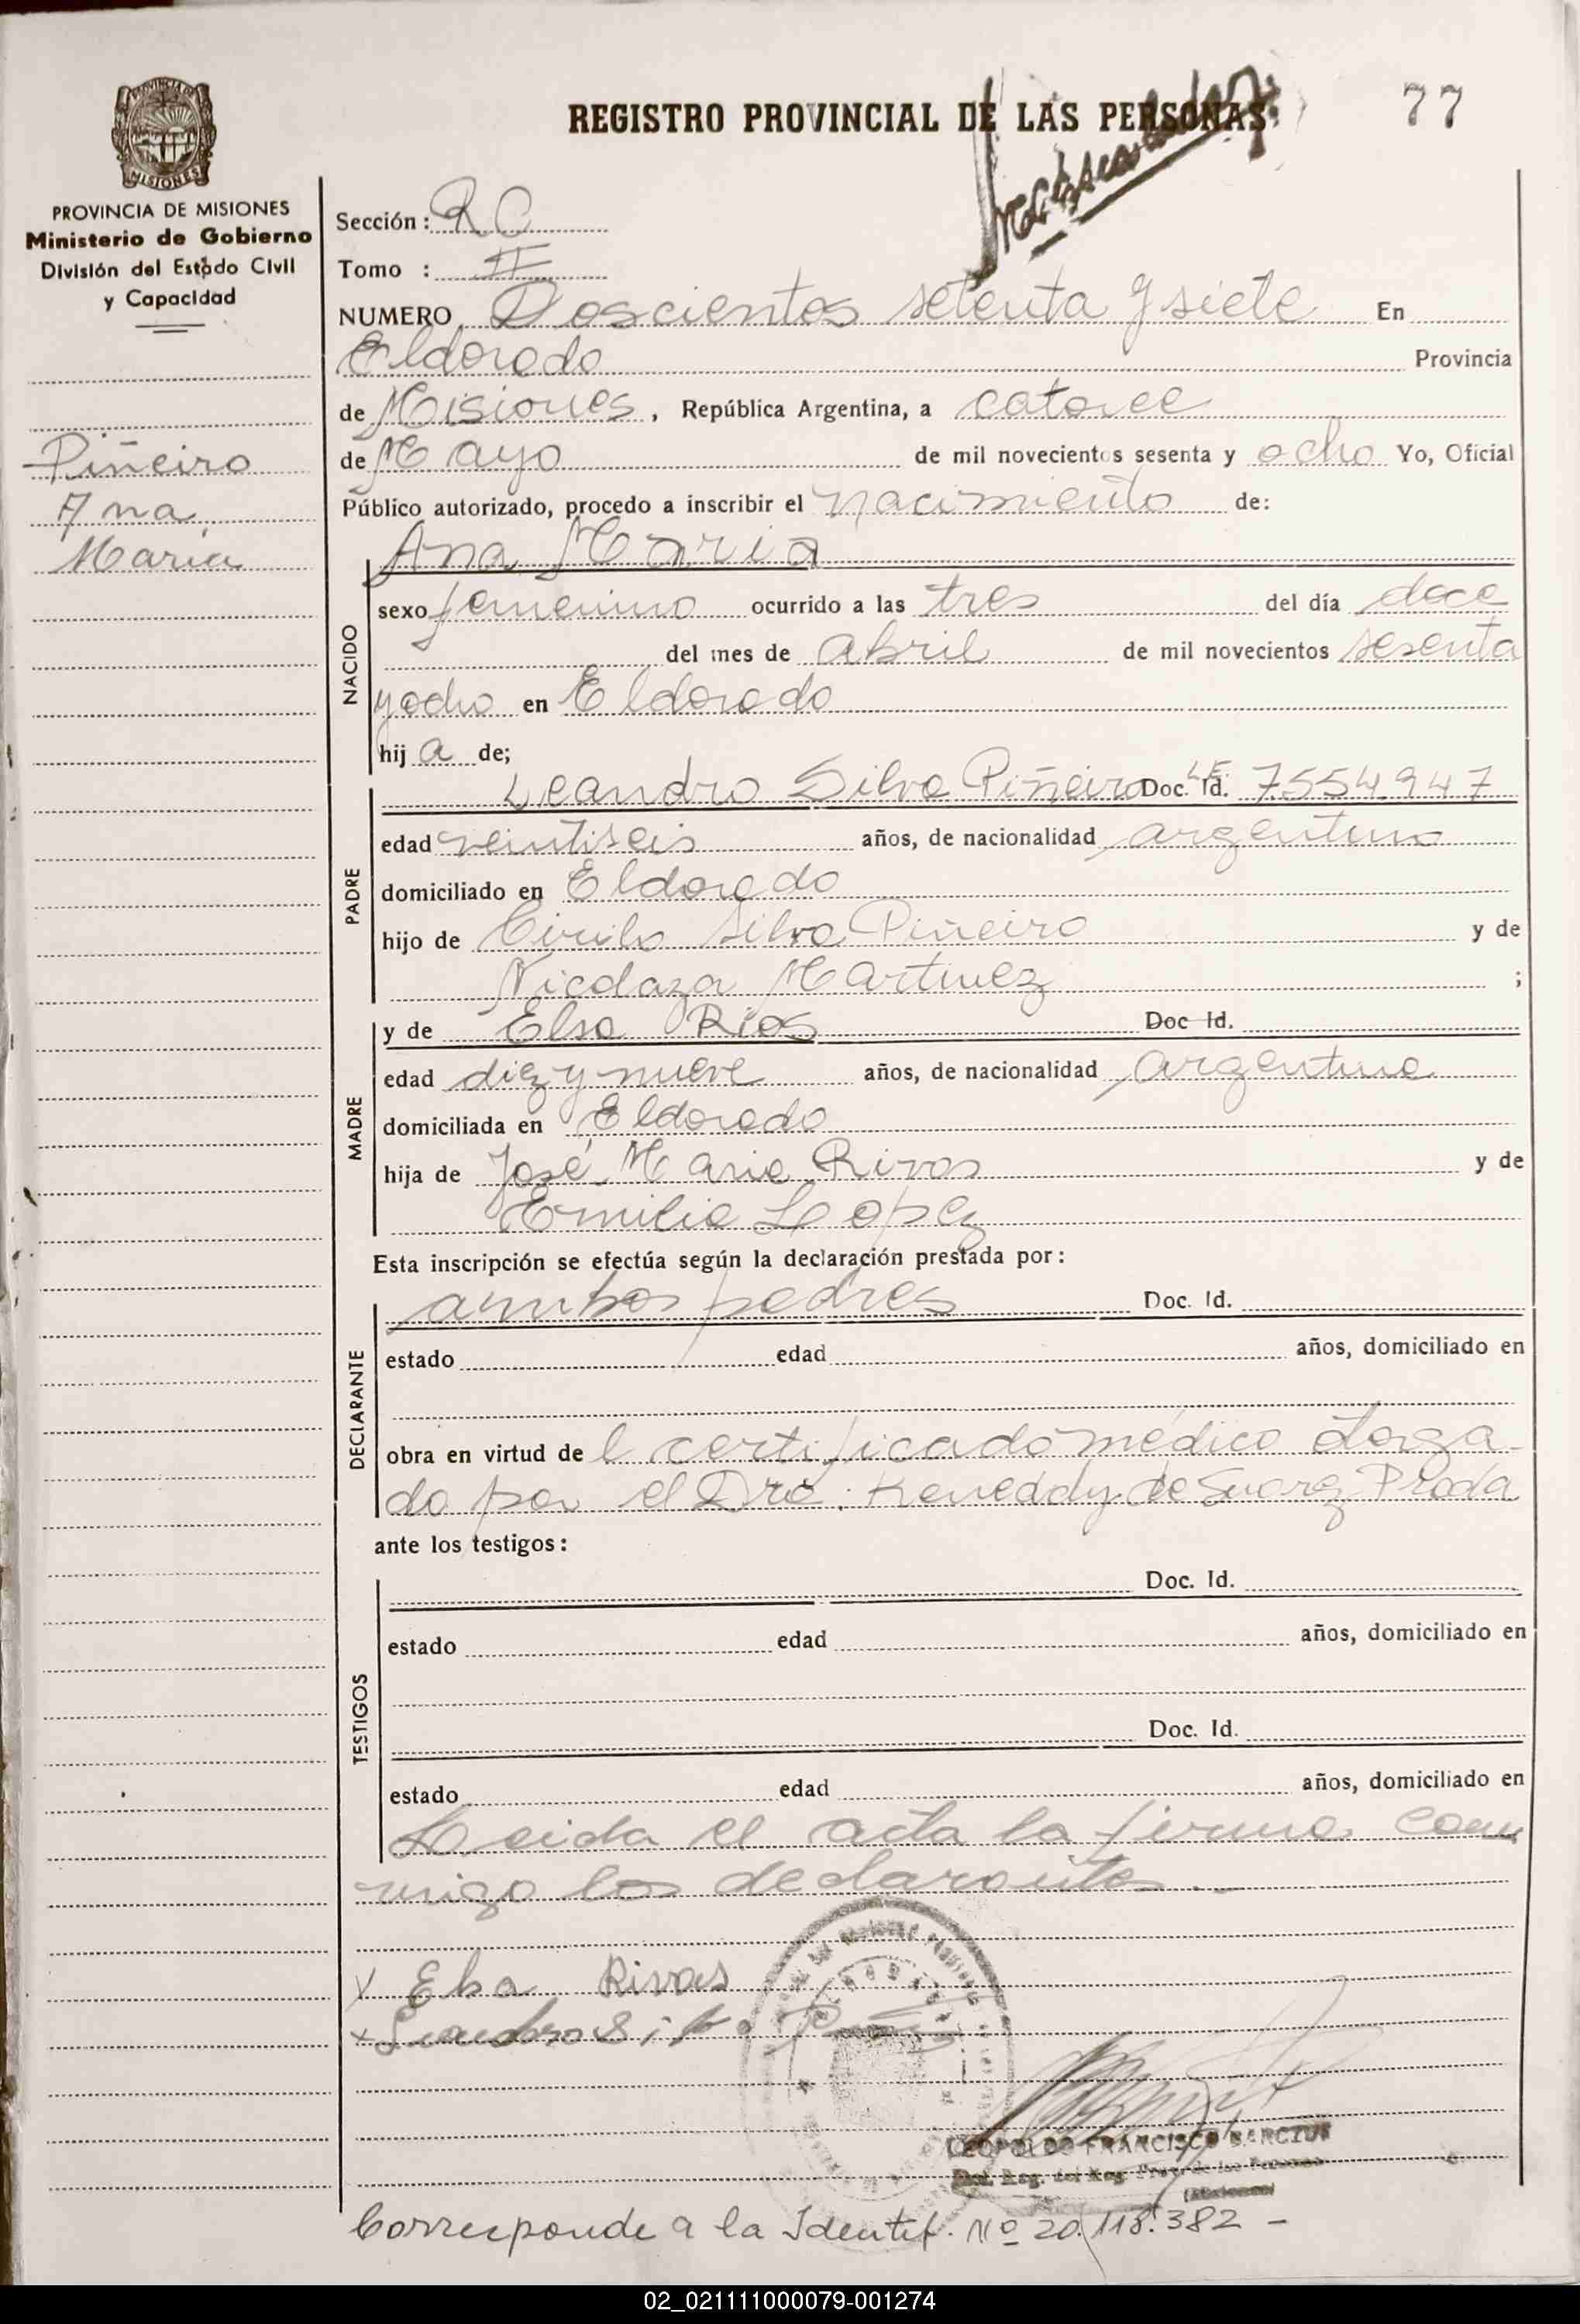 REGISTRO PROVINCIAL DE LAS PERSONAS
77
PROVINCIA DE MISIONES
Ministerio de Gobierno
División del Estado Civil
y Capacidad
Piñeiro
Ana
María
Sección: RC
Tomo : II
NUMERO Doscientos setenta y siete En
Eldorado Provincia
de Misiones, República Argentina, a catorce
de Mayo de mil novecientos sesenta y ocho Yo, Oficial
Público autorizado, procedo a inscribir el nacimiento de:
Ana Maria
NACIDO
sexo femenino ocurrido a las tres del día doce
del mes de abril de mil novecientos sesenta
y ocho en Eldorado
hij a de;
PADRE
Leandro Silva Piñeiro Doc. Id. LE. 7554.947
edad veintiseis años, de nacionalidad argentina
domiciliado en Eldorado
hijo de Cirilo Silva Piñeiro y de
Nicolaza Martinez ;
MADRE
y de Elsa Rios Doc Id.
edad diez y nueve años, de nacionalidad argentina
domiciliada en Eldorado
hija de José Maria Rivas y de
Emilia Lopez
Esta inscripción se efectúa según la declaración prestada por:
DECLARANTE
ambos padres Doc. Id.
estado edad años, domiciliado en
obra en virtud de l certificado médico otorga
do por el Dra. Keneddy de Suarez Prada
ante los testigos:
TESTIGOS
Doc. Id.
estado edad años, domiciliado en
Doc. Id.
estado edad años, domiciliado en
Leida el acta la firma con
migo los declarantes.-
x Elsa Rivas
x Leandro Silva
LEOPOLDO FRANCISCO
Corresponde a la Identif. Nº 20.118.382 -
02_021111000079-001274